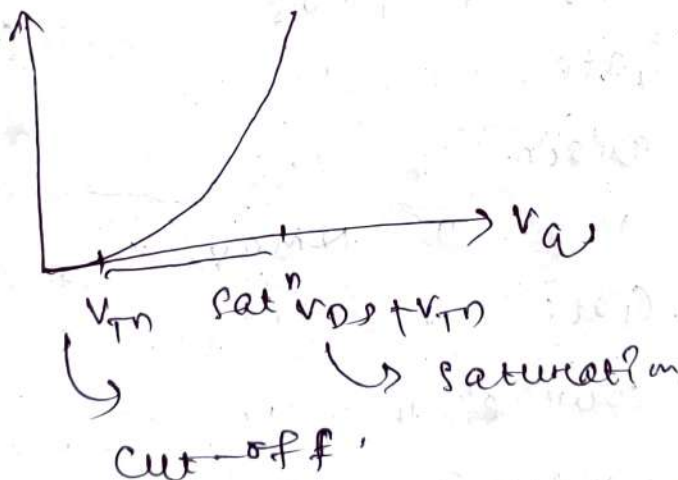 V_GS
V_Tn  Satⁿ V_DS + V_Tn
saturation
cut-off.